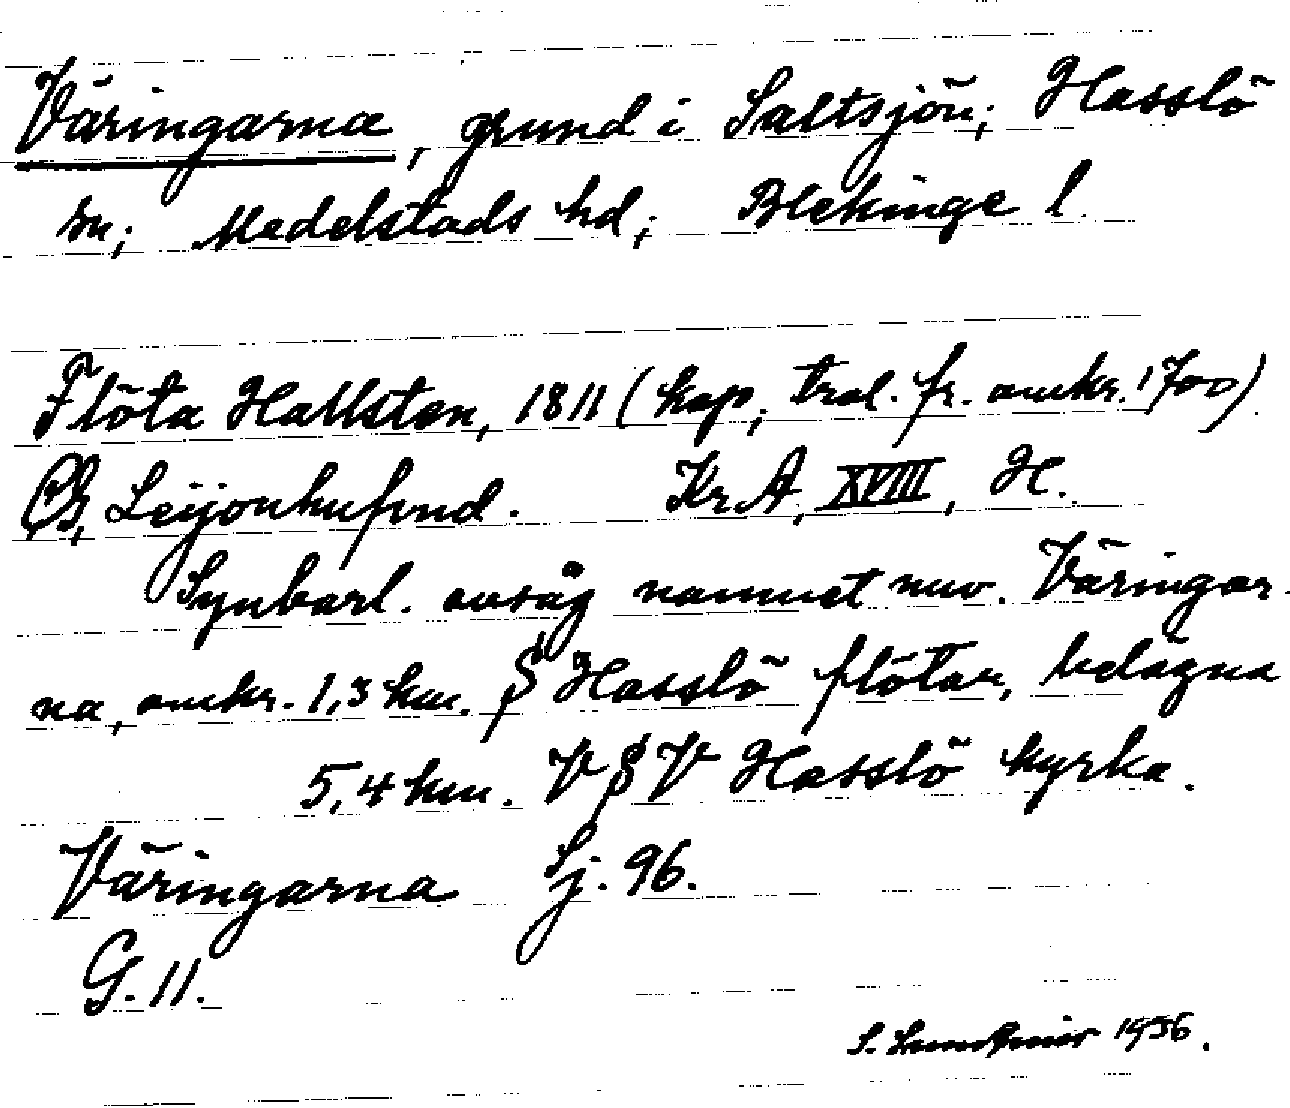 Väringarna, grund i Saltsjön; Hasslö
sn; Medelstads hd; Blekinge l.
Flöta Hallsten, 1811 (kop; trol. fr. omkr. 1700)
Leijonhufvud. Kr.A, XVIII, H.
Synbarl. avsåg namnet nuv. Väringar-
na, omkr. 1,3 km. S Hasslö flötar, belägna
5,4 km. V S V Hasslö kyrka.
Väringarna Sj. 96.
G. 11.
S. 1936.